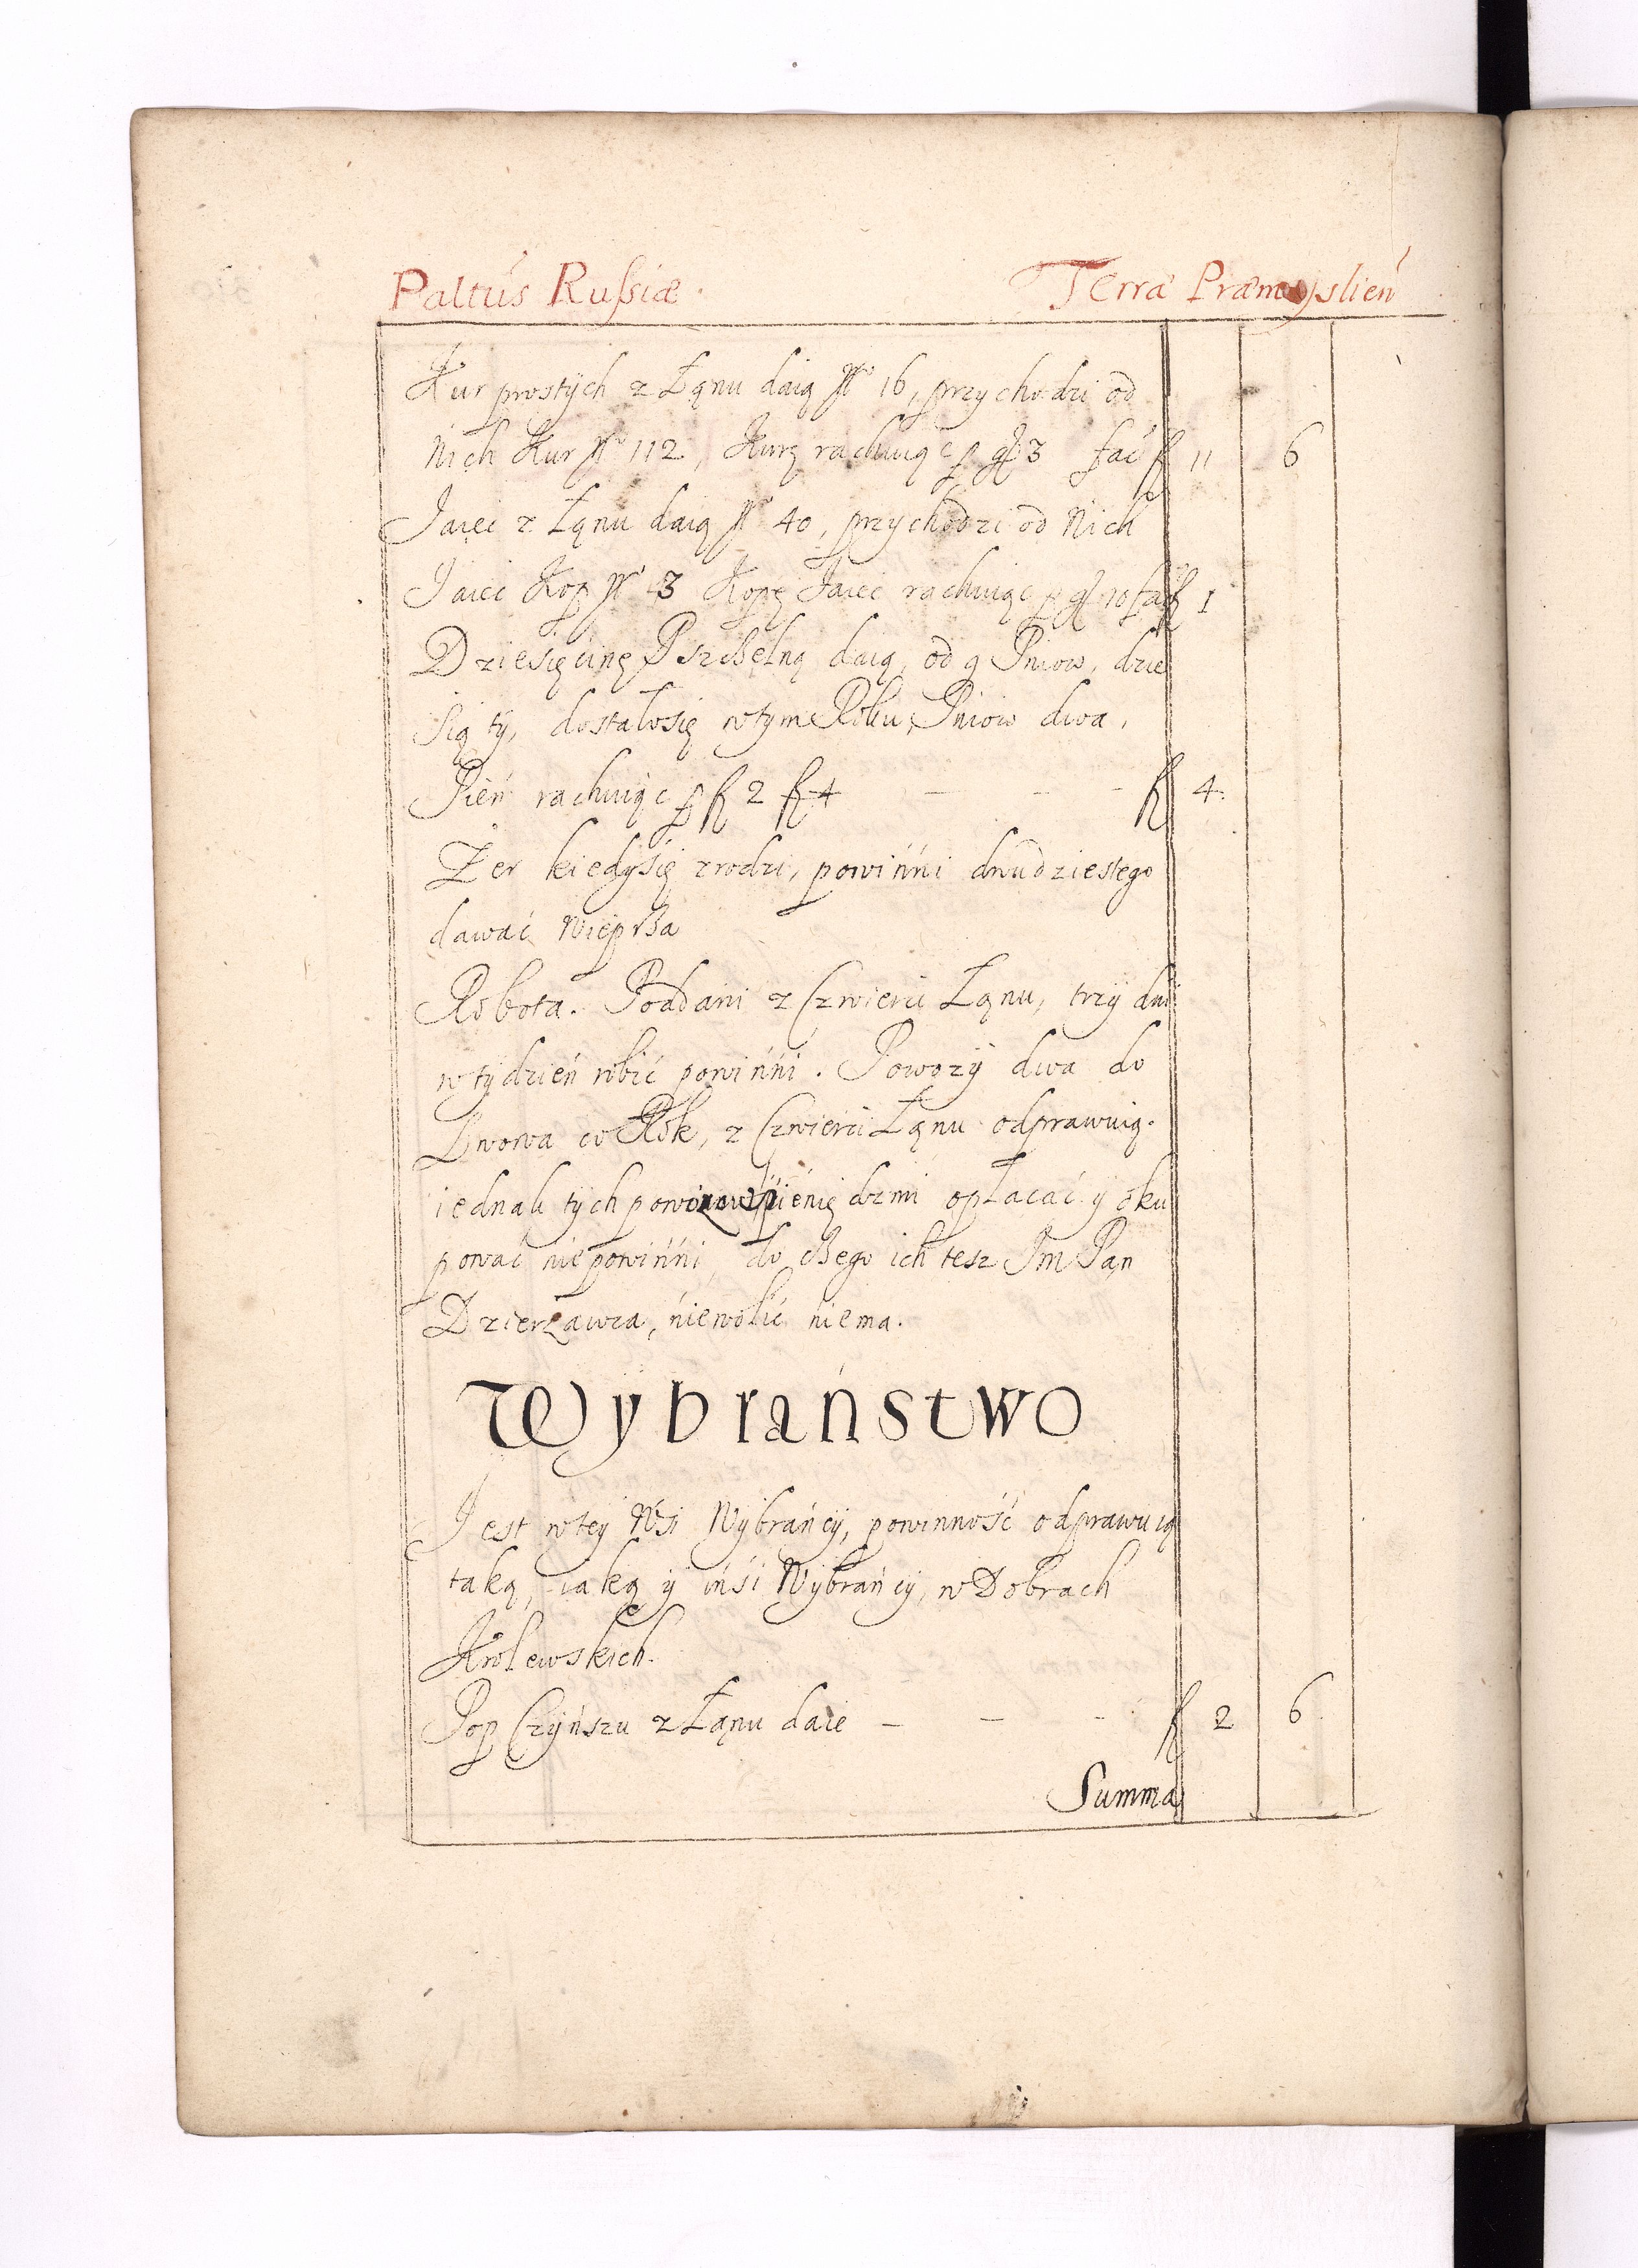 Paltus Russiæ. Terra Præmyslien
Kur prostych z Łanu daią No 16, przychodzi od
Nich Kur No 112, Kurę rachuiąc p gr 3 fac f 11 6
Jaiec z Łanu daią No 40, przychodzi od Nich
Jaiec Kop No 3 Kopę Jaiec rachuiąc p gr 10 fac f 1
Dziesięcinę Pszczelną daią, od 9 Pniow, dzie
siąty, dostałosię wtym Roku, Pniow dwa,
Pień rachuiąc p f 2 f 4 - - - f 4.
Żer kiedysię zrodzi, powińńi dwudziestego
dawać Wieprza
Robota. Poddani z Czwierci Łanu, trzy dni
wtydzień robić powińńi. Powozy dwa do
Lwowa co Rok, z Czwierci Łanu odprawuią.
iednak tych pieniędzmi opłacać y oku
pować niepowińńi, do czego ich tesz Jm Pan
Dzierżawca, niewolić niema.
Wybraństwo
Jest wtey Wsi Wybrańcy, powinność odprawuią
taką, iaką y ińsi Wybrańcy, w Dobrach
Krolewskich.
Pop Czyńszu z Łanu daie - - - f 2 6
Summa